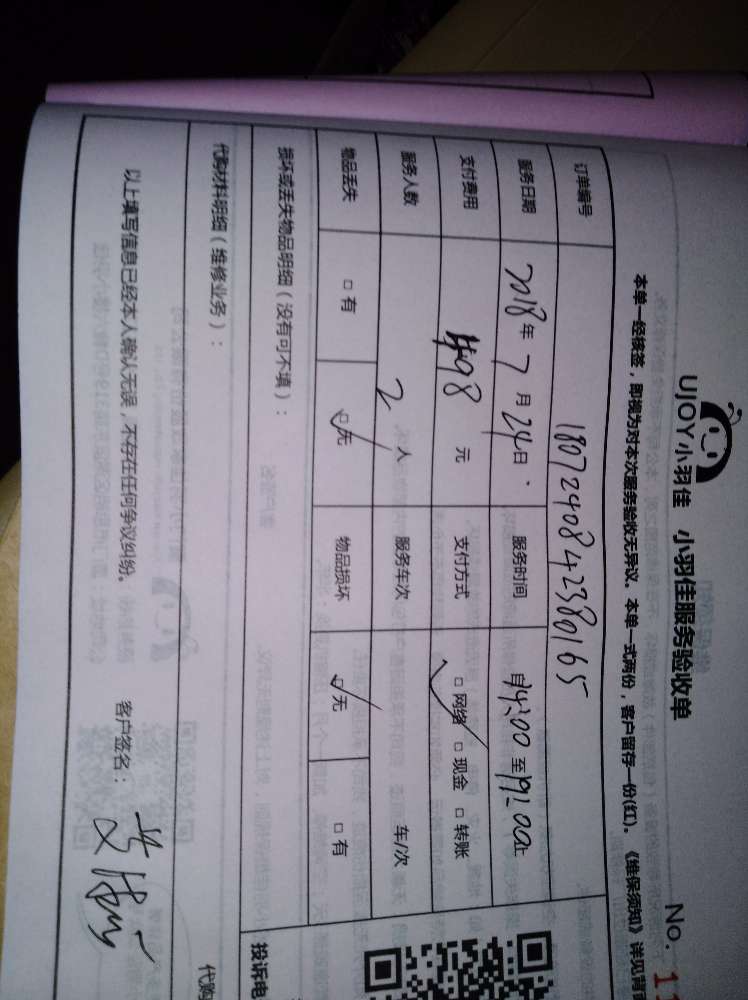 UJOY小羽佳 小羽佳服务验收单
No. 1
本单一经核签，即视为对本次服务验收无异议。本单一式两份，客户留存一份(红)。《维保须知》详见背
订单编号 1807240842380165
服务日期 2018年7月24日 服务时间 自14:00至19:00止
支付费用 498元 支付方式 □网络 □现金 □转账
服务人数 2人 服务车次 车/次
物品丢失 □有 □无 物品损坏 □无 □有
损坏或丢失物品明细（没有可不填）：
投诉电
代购材料明细（维修业务）：
代购
以上填写信息已经本人确认无误，不存在任何争议纠纷。 客户签名：